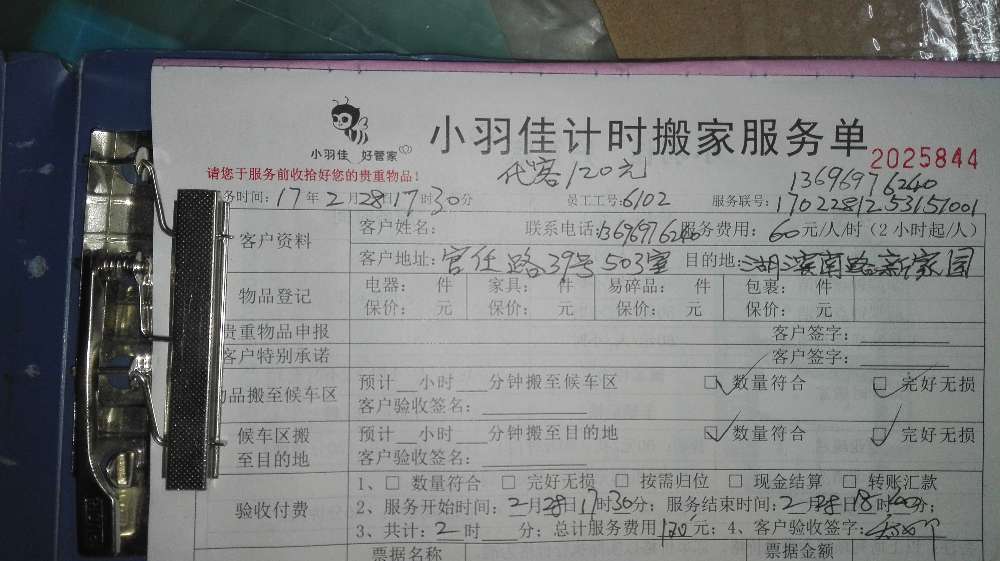 小羽佳 好管家
小羽佳计时搬家服务单
2025844
请您于服务前收拾好您的贵重物品!
代客120元
13696976240
务时间:17年2月28日17时30分 员工工号:6102 服务联号:1702281253151001
客户资料
客户姓名: 联系电话:13696976240服务费用:60元/人/时(2小时起/人)
客户地址:官任路39号503室 目的地:湖滨南路新家园
物品登记
电器: 件 家具: 件 易碎品: 件 包裹: 件
保价: 元 保价: 元 保价: 元 保价: 元
贵重物品申报 客户签字:
客户特别承诺 客户签字:
物品搬至候车区
预计__小时___分钟搬至候车区 ☑数量符合 ☑完好无损
客户验收签名:
候车区搬至目的地
预计__小时___分钟搬至目的地 ☑数量符合 ☑完好无损
客户验收签名:
验收付费
1、□ 数量符合 □ 完好无损 □ 按需归位 □ 现金结算 □ 转账汇款
2、服务开始时间:2月28日17时30分;服务结束时间:2月28日18时00分;
3、共计:2时 分;总计服务费用120元;4、客户验收签字:
票据名称 票据金额